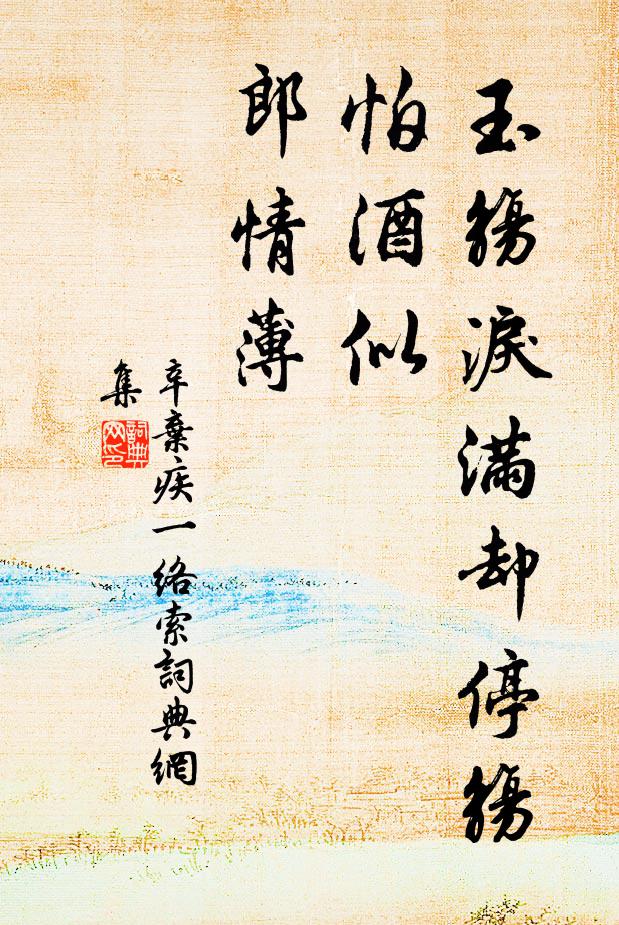 玉觴淚滿却停觴
怕酒似
郎情薄
辛棄疾一絡索詞典網
集
詞典
网印